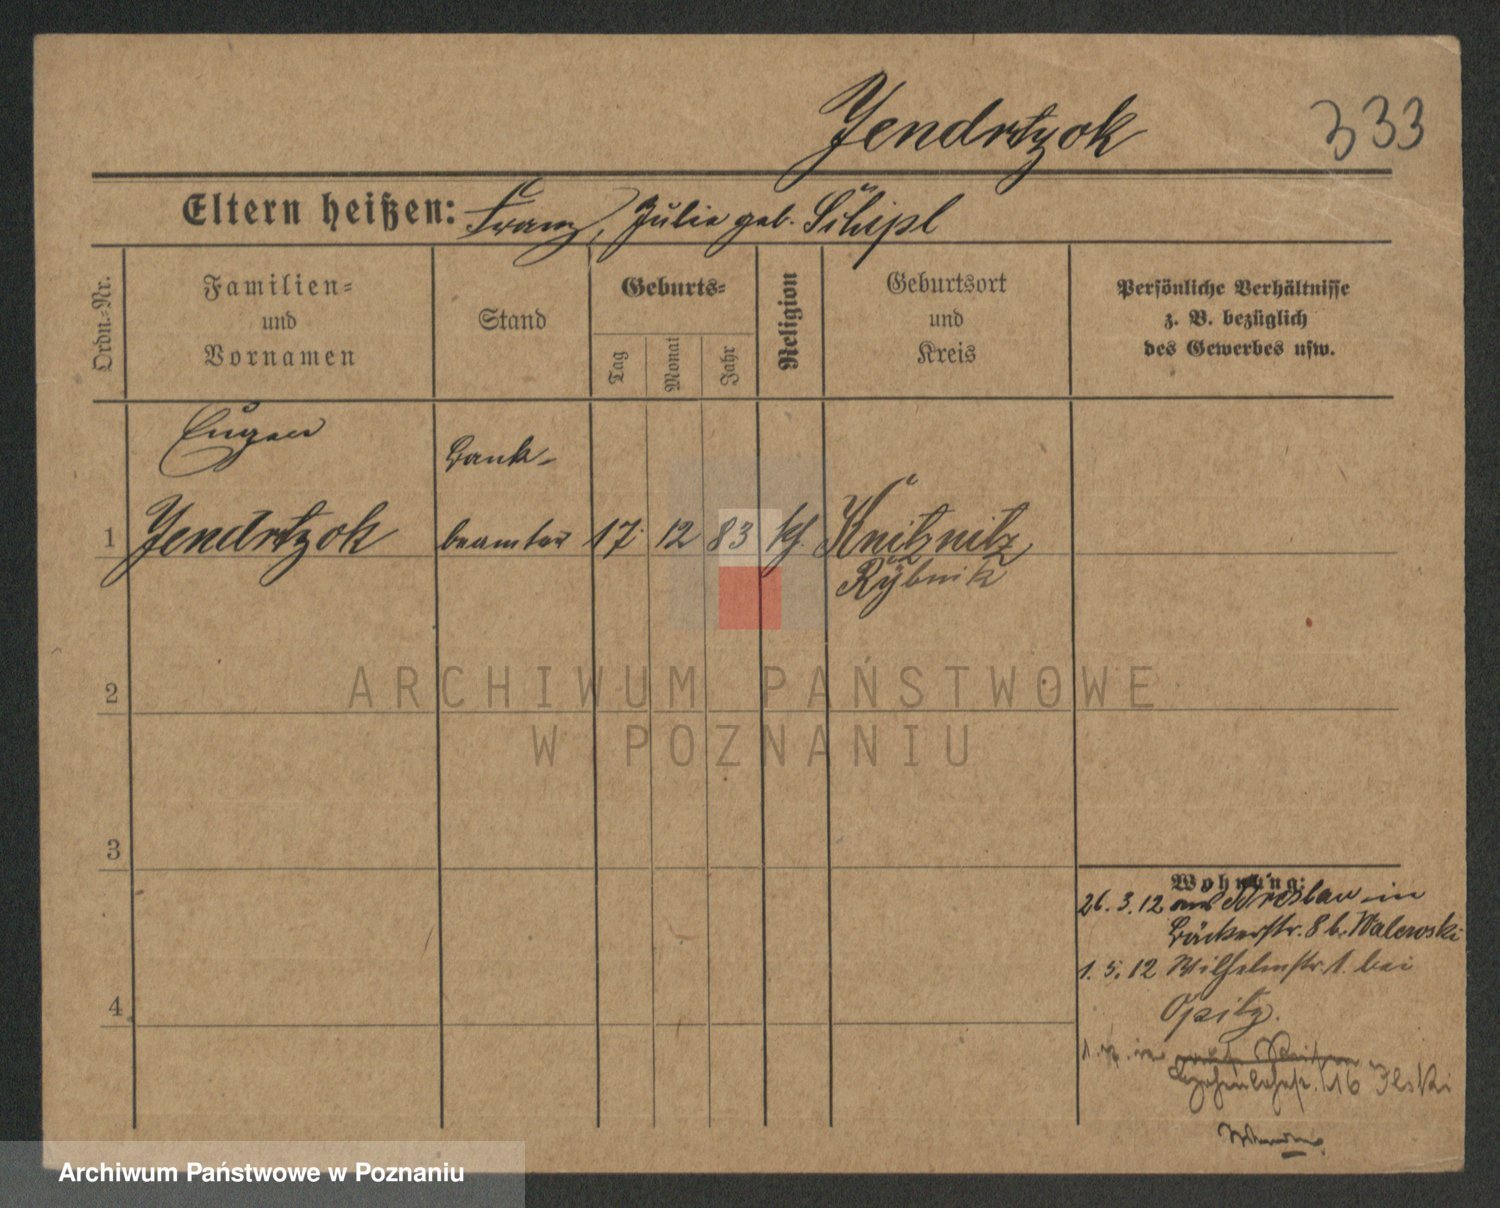 Jendrtzok 333
Eltern heißen: Franz, Julie geb. Schipl
Ordn.-Nr.
Familien-
und
Vornamen
Stand
Geburts-
Tag
Monat
Jahr
Religion
Geburtsort
und
Kreis
Persönliche Verhältnisse
z. B. bezüglich
des Gewerbes usw.
Eugen
Bank-
1 Jendrtzok beamter 17. 12 83 kf. Knitznitz
Rybnik
ARCHIWUM PAŃSTWOWE
W POZNANIU
2
3
4
Wohnung:
26. 3. 12 aus Breslau in
Bäckerstr. 8 b. Walewski
1. 5. 12 Wilhelmstr. 1. bei
Opitz.
16 Ilski
Archiwum Państwowe w Poznaniu